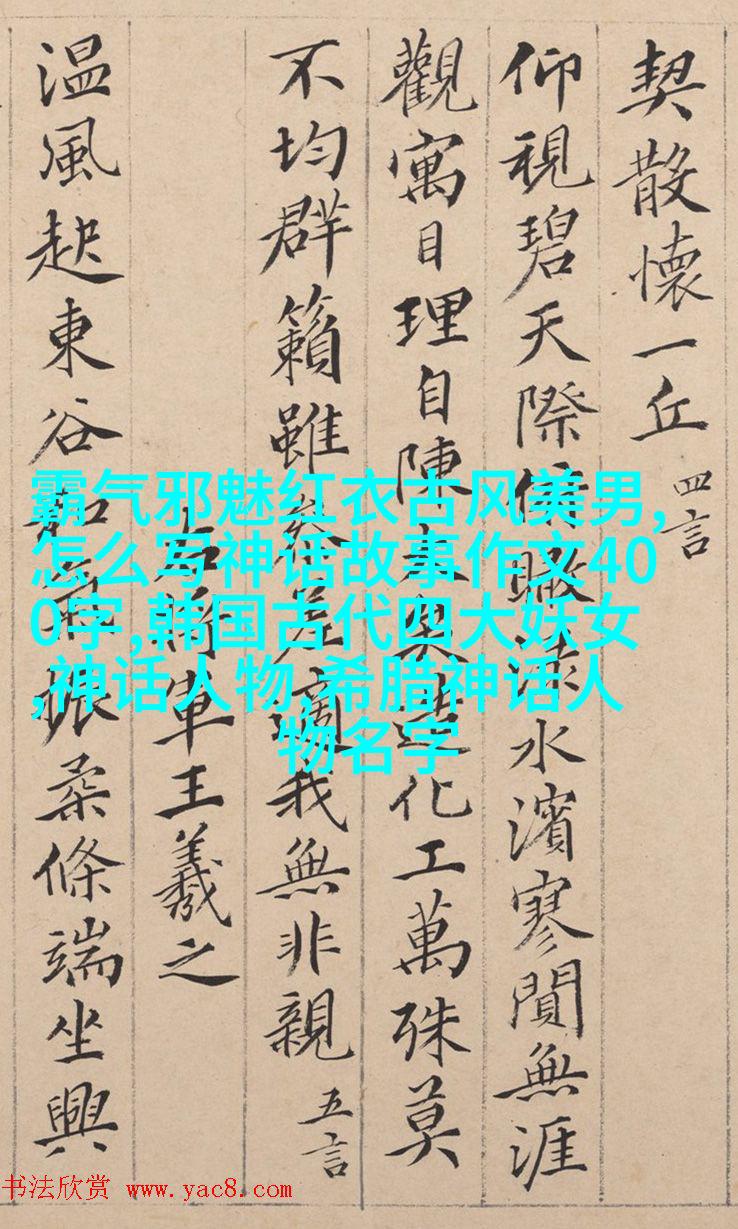 契散懷一丘 四言
仰視碧天際俯瞰淥水濱寥閴無涯
觀寓目理自陳大矣造化工萬殊莫
不均群籟雖參差適我無非親 五言
右將軍王羲之
温風起東谷和氣振柔條端坐興
霸气邪魅红衣古风美男,
怎么写神话故事作文40
0字,韩国古代四大妖女
,神话人物,希腊神话人
物名字
书法欣赏 www.yac8.com